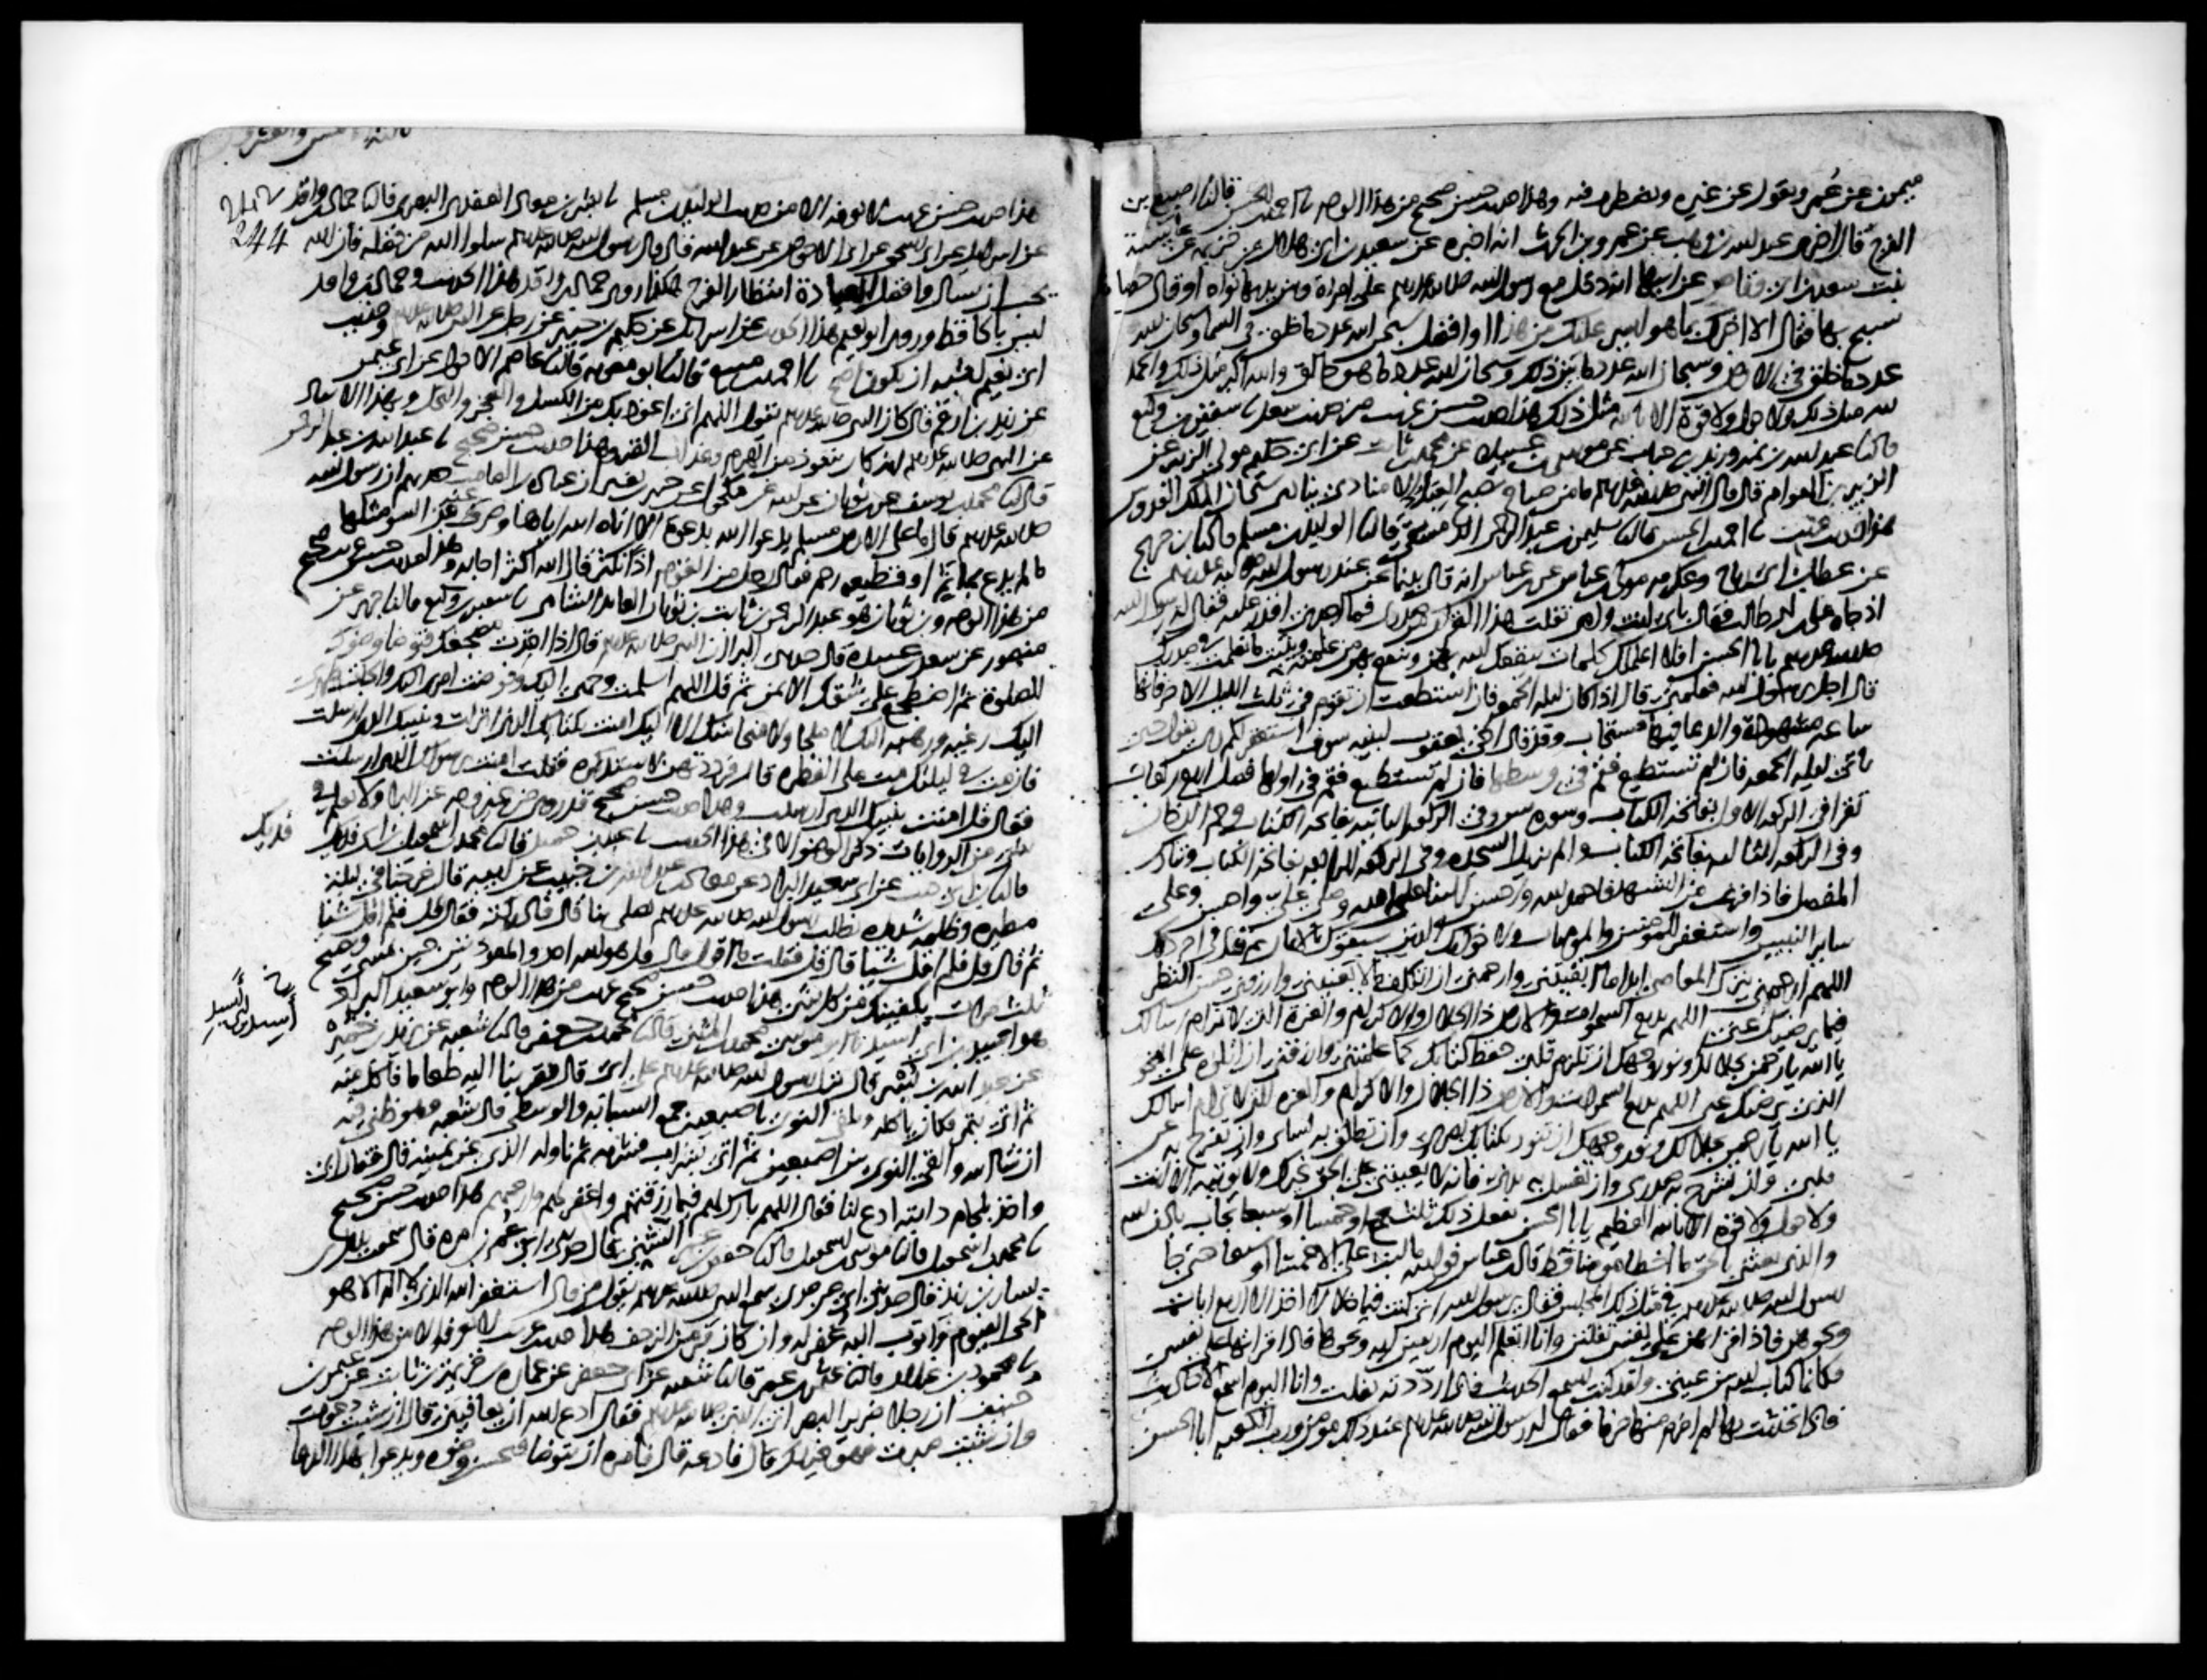 ميمون عن عمر ويقول عن غيره ويضطرب فيه وهذا حديث حسن صحيح من هذا الوجه نا احمد بن الحسن قال نا اصبغ بن
الفرج قال اخبرني عبد الله بن وهب عن عمرو بن الحارث انه اخبره عن سعيد بن ابي هلال عن خزيمة عن عائشة
بنت سعد بن ابي وقاص عن ابيها انه دخل مع رسول الله صلى الله عليه وسلم على امراة وبين يديها نواة او قال حصاة
تسبح بها فقال الا اخبرك بما هو ايسر عليك من هذا او افضل سبحان الله عدد ما خلق في السماء وسبحان الله
عدد ما خلق في الارض وسبحان الله عدد ما بين ذلك وسبحان الله عدد ما هو خالق والله اكبر مثل ذلك والحمد
لله مثل ذلك ولا حول ولا قوة الا بالله مثل ذلك هذا حديث حسن غريب من حديث سعد نا سفين بن وكيع
قال نا عبد الله بن نمير وزيد بن حباب عن موسى بن عبيدة عن محمد بن ثابت عن ابي حكيم مولى الزبير عن
الزبير بن العوام قال قال النبي صلى الله عليه وسلم ما من صباح يصبح العباد الا مناد ينادي سبحان الملك القدوس
هذا حديث غريب نا احمد بن الحسن قال نا سليمن بن عبد الرحمن الدمشقي قال نا الوليد بن مسلم قال نا ابن جريج
عن عطاء بن ابي رباح وعكرمة مولى ابن عباس عن ابن عباس انه قال بينا نحن عند رسول الله صلى الله عليه وسلم
اذ جاه علي بن ابي طالب فقال بابي انت وامي تفلت هذا القران من صدري فما اجدني اقدر عليه فقال له رسول الله
صلى الله عليه وسلم يا ابا الحسن افلا اعلمك كلمات ينفعك الله بهن وينفع بهن من علمته ويثبت ما تعلمت في صدرك
قال اجل يا رسول الله فعلمني قال اذا كان ليلة الجمعة فان استطعت ان تقوم في ثلث الليل الاخر فانها
ساعة مشهودة والدعا فيها مستجاب وقد قال اخي يعقوب لبنيه سوف استغفر لكم ربي يقول حتى
تاتي ليلة الجمعة فان لم تستطع فقم في وسطها فان لم تستطع فقم في اولها فصل اربع ركعات
تقرا في الركعة الاولى بفاتحة الكتاب وسورة يس وفي الركعة الثانية بفاتحة الكتاب وحم الدخان
وفي الركعة الثالثة بفاتحة الكتاب والم تنزيل السجدة وفي الركعة الرابعة بفاتحة الكتاب وتبارك
المفصل فاذا فرغت من التشهد فاحمد الله واحسن الثناء على الله وصل علي واحسن وعلى
ساير النبيين واستغفر للمومنين والمومنات ولاخوانك الذين سبقوك بالايمان ثم قل في اخر ذلك
اللهم ارحمني بترك المعاصي ابدا ما ابقيتني وارحمني ان اتكلف ما لا يعنيني وارزقني حسن النظر
فيما يرضيك عني اللهم بديع السموات والارض ذا الجلال والاكرام والعزة التي لا ترام اسالك
يا الله يا رحمن بجلالك ونور وجهك ان تلزم قلبي حفظ كتابك كما علمتني وارزقني ان اتلوه على النحو
الذي يرضيك عني اللهم بديع السموات والارض ذا الجلال والاكرام والعزة التي لا ترام اسالك
يا الله يا رحمن بجلالك ونور وجهك ان تنور بكتابك بصري وان تطلق به لساني وان تفرج به عن
قلبي وان تشرح به صدري وان تغسل به بدني فانه لا يعينني على الحق غيرك ولا يوتيه الا انت
ولا حول ولا قوة الا بالله العظيم يا ابا الحسن تفعل ذلك ثلث جمع او خمسا او سبعا تجاب باذن الله
والذي بعثني بالحق ما اخطا مومنا قط قال ابن عباس فوالله ما لبث علي الا خمسا او سبعا حتى جا
رسول الله صلى الله عليه وسلم في مثل ذلك المجلس فقال يا رسول الله اني كنت فيما خلا لا اخذ الا اربع ايات
ونحوهن فاذا قراتهن على نفسي تفلتن وانا اتعلم اليوم اربعين اية ونحوها فاذا قراتها على نفسي
فكانما كتاب الله بين عيني ولقد كنت اسمع الحديث فاذا رددته تفلت وانا اليوم اسمع الاحاديث
فاذا تحدثت بها لم اخرم منها حرفا فقال له رسول الله صلى الله عليه وسلم عند ذلك مومن ورب الكعبة ابا الحسن
244
هذا حديث حسن غريب لا نعرفه الا من حديث الوليد بن مسلم نا بشر بن معاذ العقدي البصري قال نا حماد بن واقد
عن اسرائيل عن ابي اسحق عن ابي الاحوص عن عبد الله قال قال رسول الله صلى الله عليه وسلم سلوا الله من فضله فان الله
يحب ان يسال وافضل العبادة انتظار الفرج هكذا روى حماد بن واقد هذا الحديث وحماد بن واقد
ليس بالحافظ وروى ابو نعيم هذا الحديث عن اسرائيل عن حكيم بن جبير عن رجل عن النبي صلى الله عليه وسلم وحديث
ابي نعيم اشبه ان يكون اصح نا احمد بن منيع قال نا ابو معوية قال نا عاصم الاحول عن ابي عثمن
عن زيد بن ارقم قال كان النبي صلى الله عليه وسلم يقول اللهم اني اعوذ بك من الكسل والعجز والبخل وبهذا الاسناد
عن النبي صلى الله عليه وسلم انه كان يتعوذ من الهرم وعذاب القبر وهذا حديث حسن صحيح نا عبد الله بن عبد الرحمن
قال نا محمد بن يوسف عن ابن ثوبان عن ابيه عن مكحول عن جبير بن نفير ان عبادة بن الصامت حدثهم ان رسول الله
صلى الله عليه وسلم قال ما على الارض مسلم يدعو الله بدعوة الا اتاه الله اياها او صرف عنه من السوء مثلها
ما لم يدع بماثم او قطيعة رحم فقال رجل من القوم اذا نكثر قال الله اكثر وهذا حديث حسن غريب صحيح
من هذا الوجه وابن ثوبان هو عبد الرحمن بن ثابت بن ثوبان العابد الشامي نا سفين بن وكيع قال نا جرير عن
منصور عن سعد بن عبيدة قال حدثني البرا ان النبي صلى الله عليه وسلم قال اذا اخذت مضجعك فتوضا وضوءك
للصلوة ثم اضطجع على شقك الايمن ثم قل اللهم اسلمت وجهي اليك وفوضت امري اليك والجات ظهري
اليك رغبة ورهبة اليك لا ملجا ولا منجا منك الا اليك امنت بكتابك الذي انزلت ونبيك الذي ارسلت
فان مت في ليلتك مت على الفطرة قال فرددتهن لاستذكره فقلت امنت برسولك الذي ارسلت
فقال قل امنت بنبيك الذي ارسلت وهذا حديث حسن صحيح قد روي من غير وجه عن البرا ولا نعلم في
شي من الروايات ذكر الوضوء الا في هذا الحديث نا عبد بن حميد قال نا محمد بن اسمعيل بن ابي فديك
فديك
قال نا ابن ابي ذئب عن ابي سعيد البراد عن معاذ بن عبد الله بن خبيب عن ابيه قال خرجنا في ليلة
مطيرة وظلمة شديدة نطلب رسول الله صلى الله عليه وسلم يصلي بنا قال فادركته فقال قل فلم اقل شيئا
ثم قال قل فلم اقل شيئا قال قل فقلت ما اقول قال قل هو الله احد والمعوذتين حين تمسي وتصبح
ثلث مرات يكفيك من كل شي هذا حديث حسن صحيح غريب من هذا الوجه وابو سعيد البراد
أسيد
أسيد بن ابي اسيد
هو اسيد بن ابي اسيد نا ابو موسى محمد بن المثنى قال نا محمد بن جعفر قال نا شعبة عن يزيد بن خمير
عن عبد الله بن بسر قال نزل رسول الله صلى الله عليه وسلم على ابي قال فقربنا اليه طعاما فاكل منه
ثم اتي بتمر فكان ياكله ويلقي النوى باصبعيه جمع السبابة والوسطى قال شعبة وهو ظني فيه
ان شا الله والقى النوى بين اصبعين ثم اتي بشراب فشربه ثم ناوله الذي عن يمينه قال فقال ابي
واخذ بلجام دابته ادع لنا فقال اللهم بارك لهم فيما رزقتهم واغفر لهم وارحمهم هذا حديث حسن صحيح
نا محمد بن اسمعيل قال نا موسى بن اسمعيل قال نا حفص بن عمر الشني قال حدثني ابي عمر بن مرة قال سمعت بلال بن
يسار بن زيد قال حدثني ابي عن جدي سمع النبي صلى الله عليه وسلم يقول من قال استغفر الله الذي لا اله الا هو
الحي القيوم واتوب اليه غفر له وان كان فر من الزحف هذا حديث غريب لا نعرفه الا من هذا الوجه
نا محمود بن غيلان قال نا عثمن بن عمر قال نا شعبة عن ابي جعفر عن عمارة بن خزيمة بن ثابت عن عثمن بن
حنيف ان رجلا ضرير البصر اتى النبي صلى الله عليه وسلم فقال ادع الله ان يعافيني قال ان شئت دعوت
وان شئت صبرت فهو خير لك قال فادعه قال فامره ان يتوضا فيحسن وضوه ويدعو بهذا الدعا